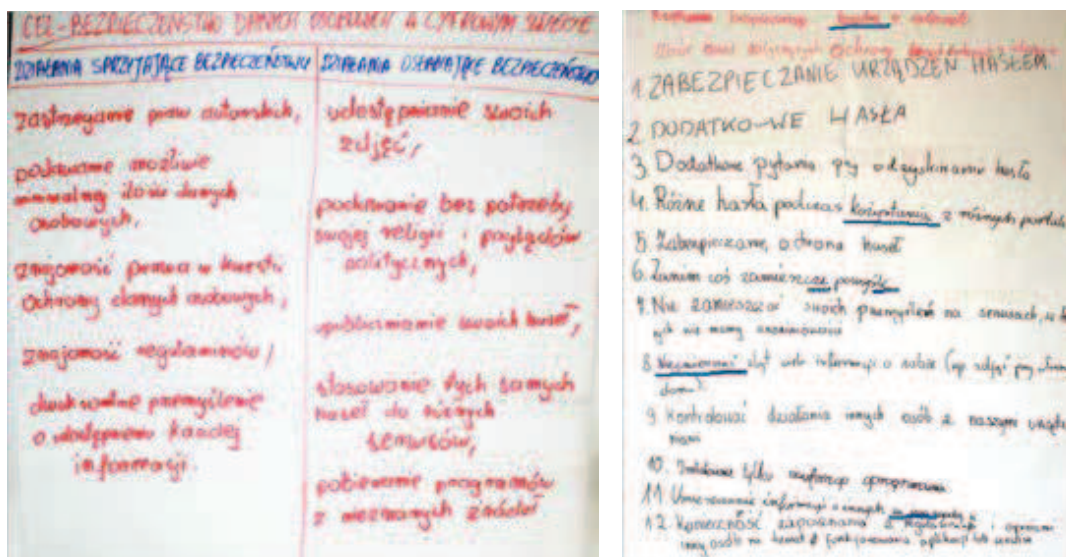 CEL - BEZPIECZEŃSTWO DANYCH OSOBOWYCH W CYFROWYM ŚWIECIE
DZIAŁANIA SPRZYJAJĄCE BEZPIECZEŃSTWU
zastrzeganie praw autorskich,
podawanie możliwie
minimalnej ilości danych
osobowych,
znajomość prawa w kwestii
ochrony danych osobowych,
znajomość regulaminów,
dwukrotne przemyślenie
o udostępnieniu każdej
informacji.
DZIAŁANIA OSŁABIAJĄCE BEZPIECZEŃSTWO
udostępnianie swoich
zdjęć,
podawanie bez potrzeby
swojej religii i poglądów
politycznych,
upublicznianie swoich haseł,
stosowanie tych samych
haseł do różnych
serwisów,
pobieranie programów
z nieznanych źródeł
ochrony
1. ZABEZPIECZANIE URZĄDZEŃ HASŁEM.
2. DODATKOWE HASŁA
3. Dodatkowe pytania przy odzyskiwaniu hasła
4. Różne hasła podczas korzystania z różnych portali
5. Zabezpieczanie, ochrona haseł
6. Zanim coś zamieszczę pomyślę
7. Nie zamieszczać swoich przemyśleń na serwisach, w
nie mamy anonimowości
8. zbyt wiele informacji o sobie (np. zdjęć przy
domu)
9. Kontrolować działania innych osób z naszym
10. tylko
11. Umieszczanie informacji o innych
12. Konieczność zapoznania z regulaminem i
innych osób na temat funkcjonowania aplikacji lub